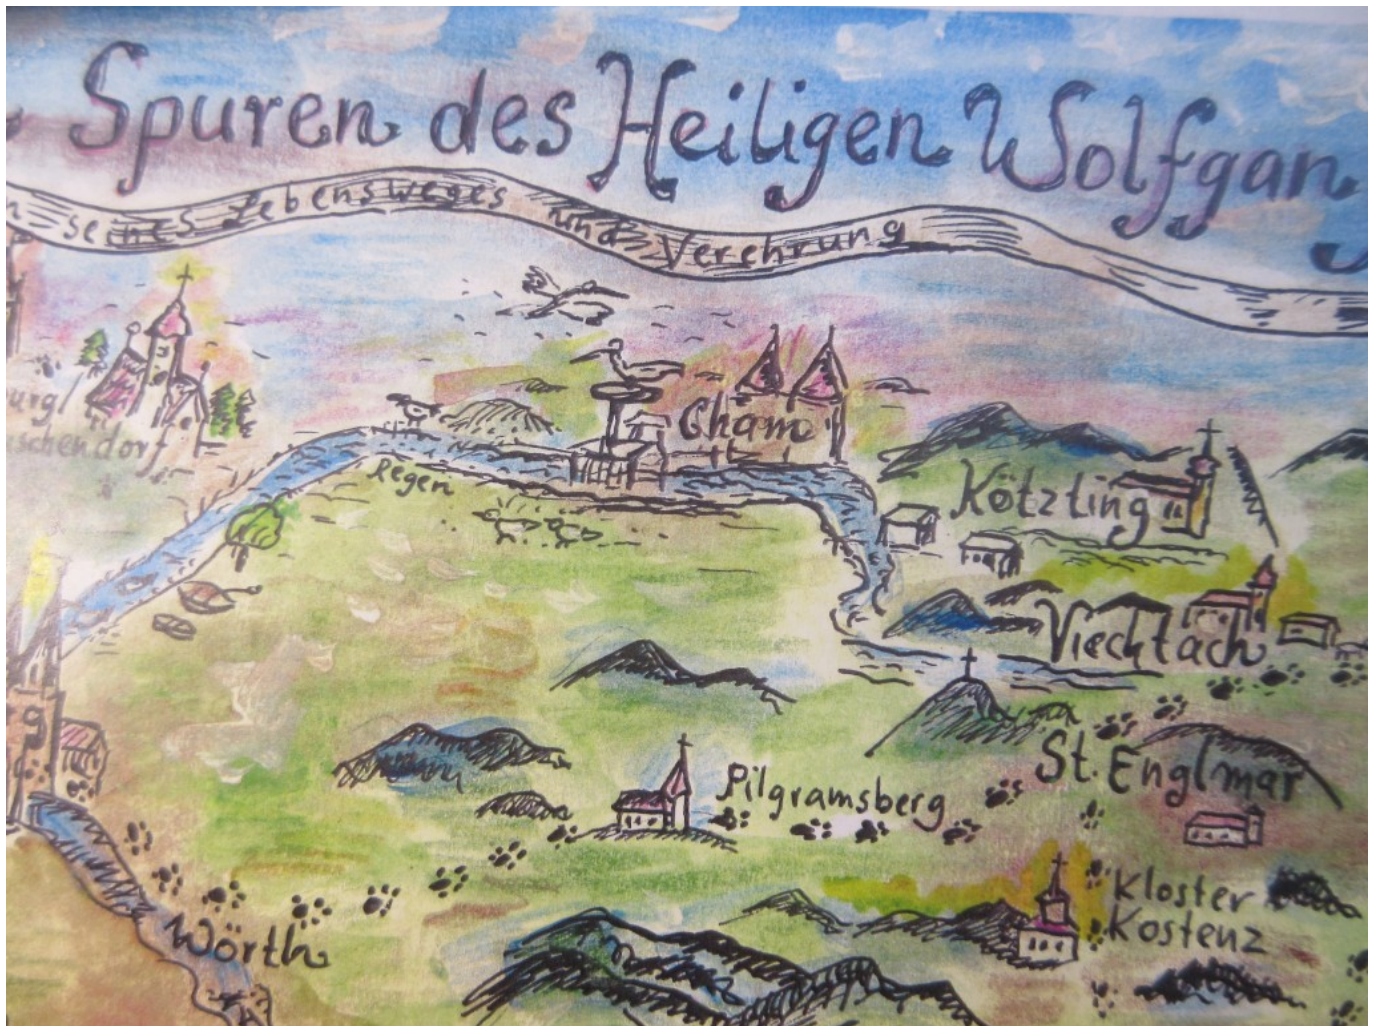 Spuren des Heiligen Wolfgan
n seines Lebensweges und Verehrung
urg
schendorf
Regen
Cham
Kötzting
Viechtach
St. Englmar
Pilgramsberg
Kloster
Kostenz
Wörth
g